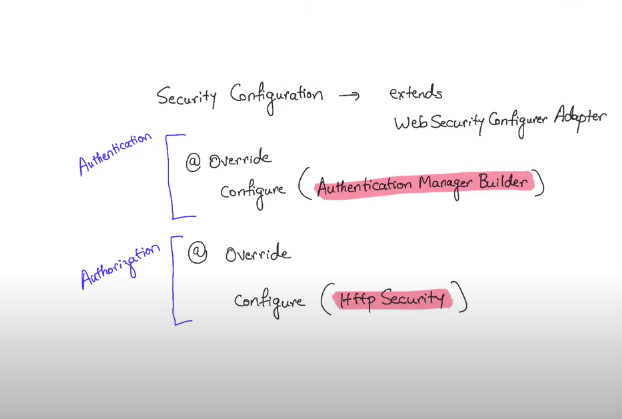 Security Configuration → extends
WebSecurity Configurer Adapter
Authentication
@ Override
Configure (Authentication Manager Builder)
Authorization
@ Override
Configure (Http Security)